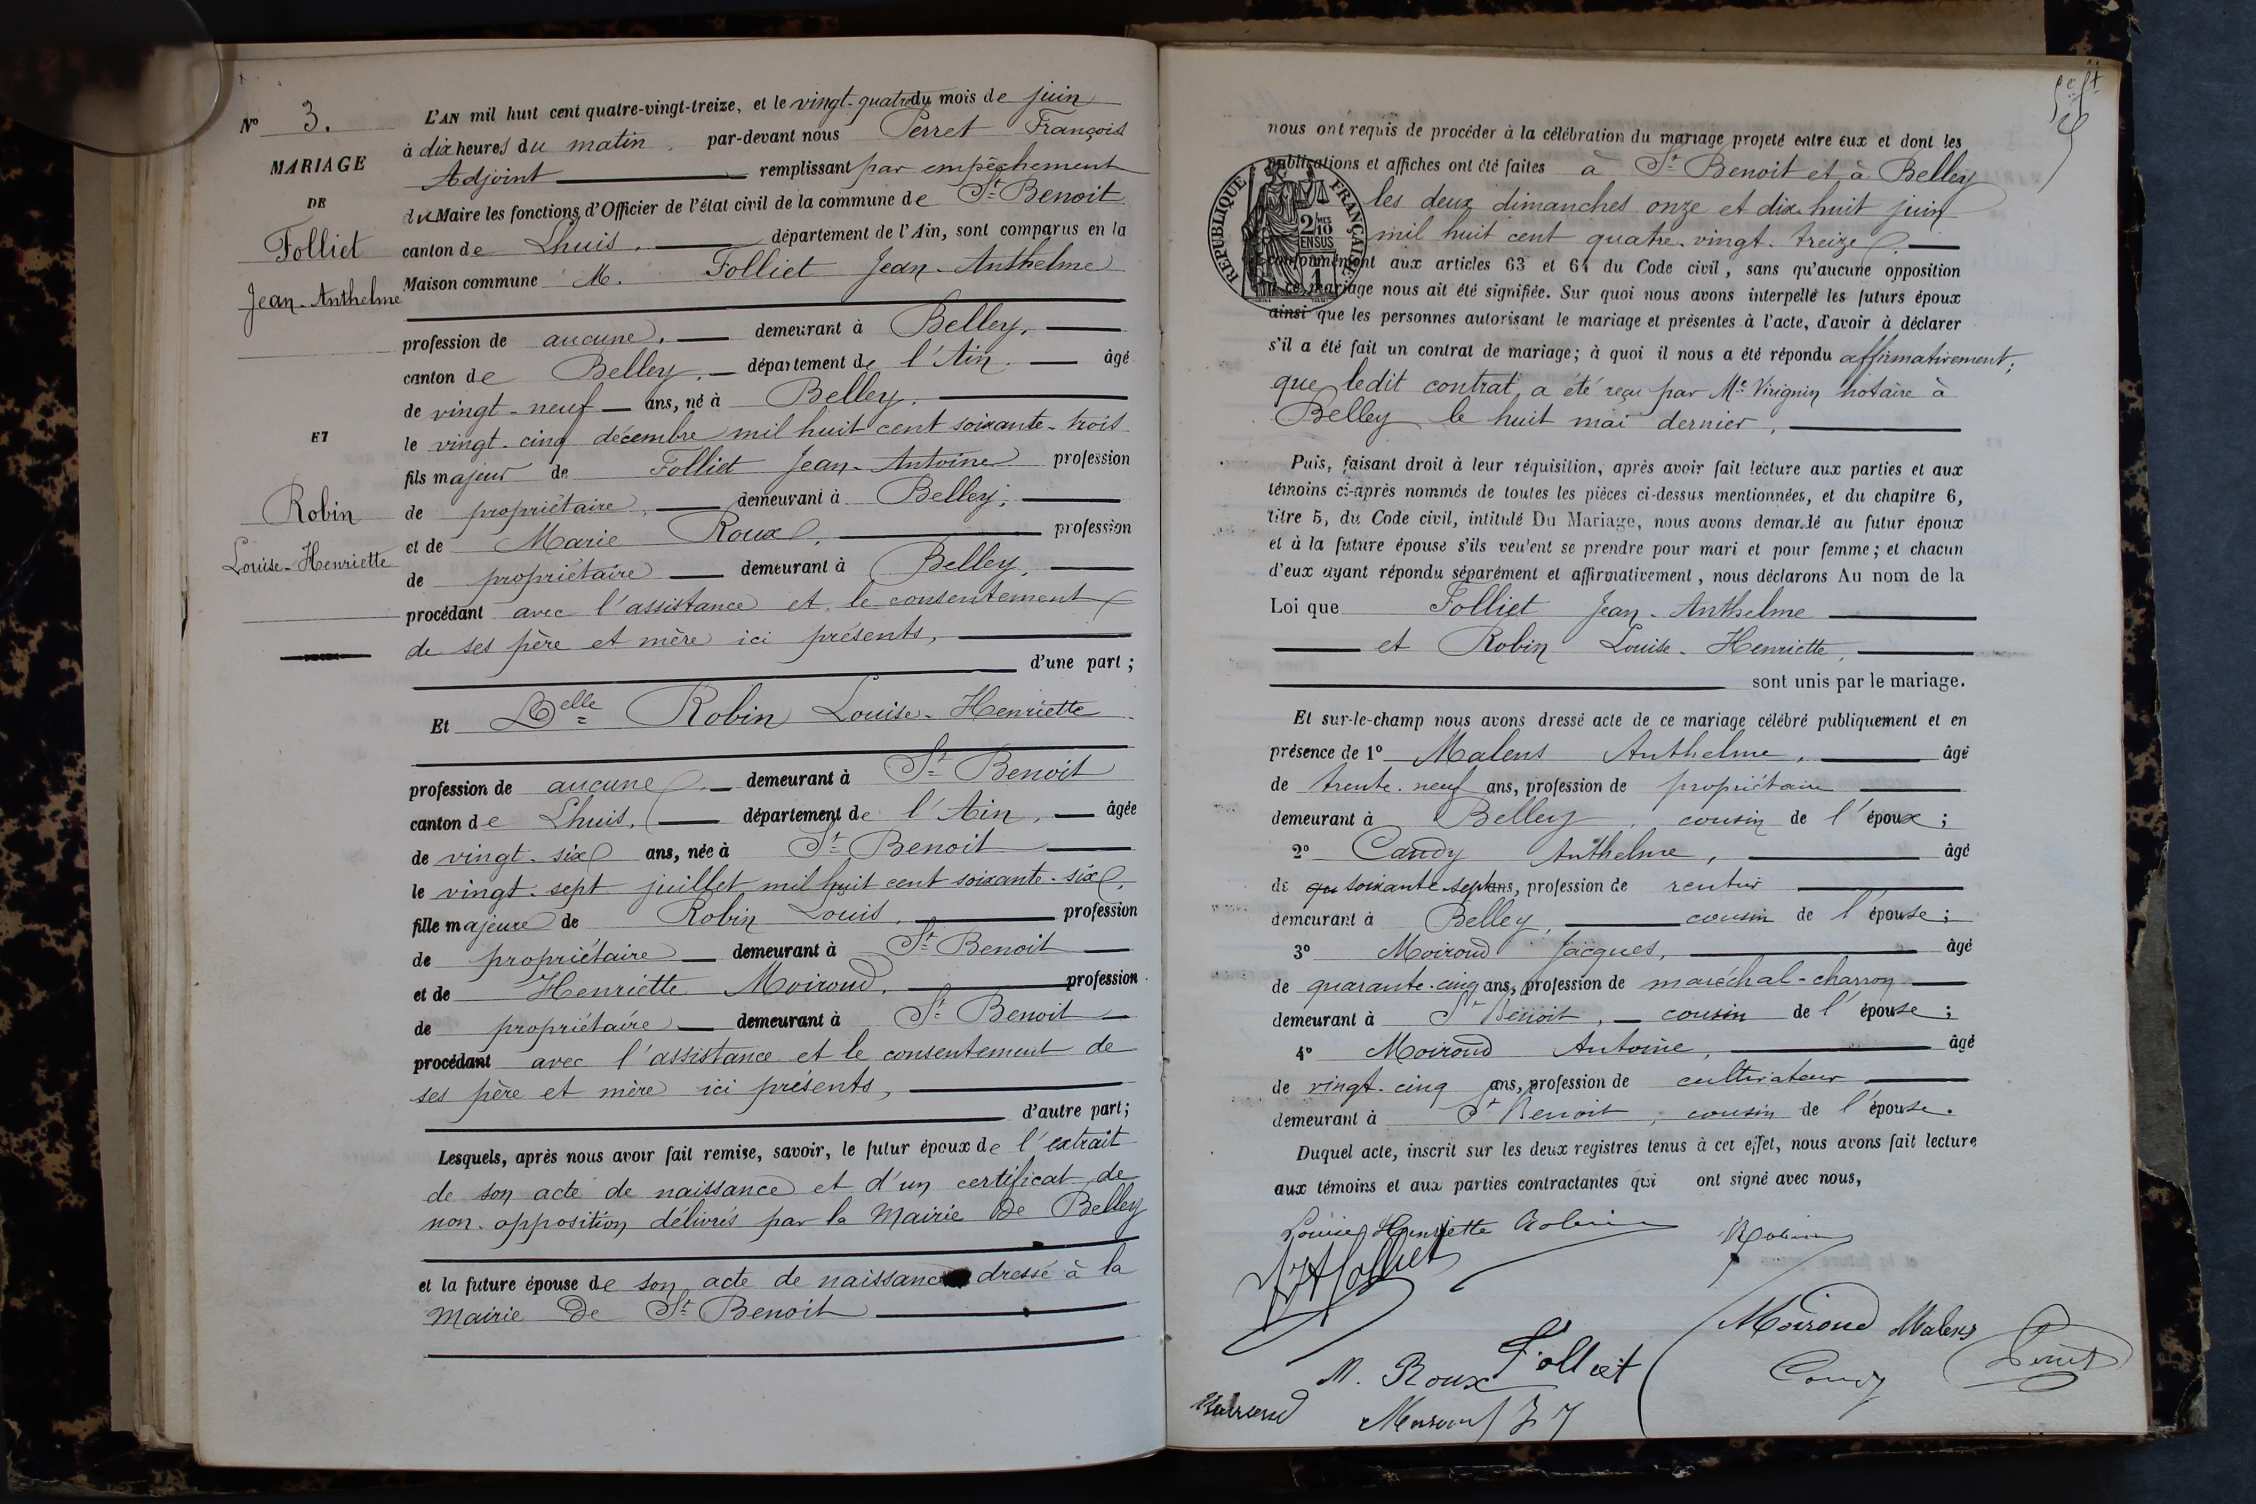 N° 3.
MARIAGE
DE
Folliet
Jean-Anthelme
ET
Robin
Louise-Henriette
L'AN mil huit cent quatre-vingt-treize, et le vingt-quatre du mois de juin
à dix heures du matin, par-devant nous Perret François
Adjoint remplissant par empêchement
du Maire les fonctions d'Officier de l'état civil de la commune de St Benoit
canton de Lhuis, département de l'Ain, sont comparus en la
Maison commune M. Folliet Jean-Anthelme
profession de aucune, demeurant à Belley,
canton de Belley, département de l'Ain, âgé
de vingt-neuf ans, né à Belley,
le vingt-cinq décembre mil huit cent soixante-trois
fils majeur de Folliet Jean-Antoine profession
de propriétaire, demeurant à Belley,
et de Marie Roux, profession
de propriétaire demeurant à Belley,
procédant avec l'assistance et le consentement
de ses père et mère ici présents,
d'une part;
Et Delle Robin Louise-Henriette
profession de aucune, demeurant à St Benoit
canton de Lhuis, département de l'Ain, âgée
de vingt-six ans, née à St Benoit
le vingt-sept juillet mil huit cent soixante-six,
fille majeure de Robin Louis, profession
de propriétaire demeurant à St Benoit
et de Henriette Moiroud, profession
de propriétaire demeurant à St Benoit
procédant avec l'assistance et le consentement de
ses père et mère ici présents,
d'autre part;
Lesquels, après nous avoir fait remise, savoir, le futur époux de l'extrait
de son acte de naissance et d'un certificat de
non-opposition délivrés par la Mairie de Belley
et la future épouse de son acte de naissance dressé à la
Mairie de St Benoit
nous ont requis de procéder à la célébration du mariage projeté entre eux et dont les
publications et affiches ont été faites à St Benoit et à Belley
les deux dimanches onze et dix-huit juin
mil huit cent quatre-vingt-treize,
RÉPUBLIQUE FRANÇAISE
2/10 MES
EN SUS
conformément aux articles 63 et 64 du Code civil, sans qu'aucune opposition
à ce mariage nous ait été signifiée. Sur quoi nous avons interpellé les futurs époux
ainsi que les personnes autorisant le mariage et présentes à l'acte, d'avoir à déclarer
s'il a été fait un contrat de mariage; à quoi il nous a été répondu affirmativement;
que ledit contrat a été reçu par Me Virignin notaire à
Belley le huit mai dernier,
Puis, faisant droit à leur réquisition, après avoir fait lecture aux parties et aux
témoins ci-après nommés de toutes les pièces ci-dessus mentionnées, et du chapitre 6,
titre 5, du Code civil, intitulé Du Mariage, nous avons demandé au futur époux
et à la future épouse s'ils veulent se prendre pour mari et pour femme; et chacun
d'eux ayant répondu séparément et affirmativement, nous déclarons Au nom de la
Loi que Folliet Jean-Anthelme
et Robin Louise-Henriette,
sont unis par le mariage.
Et sur-le-champ nous avons dressé acte de ce mariage célébré publiquement et en
présence de 1° Malens Anthelme, âgé
de trente-neuf ans, profession de propriétaire
demeurant à Belley, cousin de l'époux;
2° Candy Anthelme, âgé
de qu soixante-sept ans, profession de rentier
demeurant à Belley, cousin de l'épouse;
3° Moiroud Jacques, âgé
de quarante-cinq ans, profession de maréchal-charron
demeurant à St Benoit, cousin de l'épouse;
4° Moiroud Antoine, âgé
de vingt-cinq ans, profession de cultivateur
demeurant à St Benoit, cousin de l'épouse.
Duquel acte, inscrit sur les deux registres tenus à cet effet, nous avons fait lecture
aux témoins et aux parties contractantes qui ont signé avec nous,
Louise Henriette Robin Robin
Folliet
Moiroud Malens
M. Roux Folliet Candy Perret
Moiroud